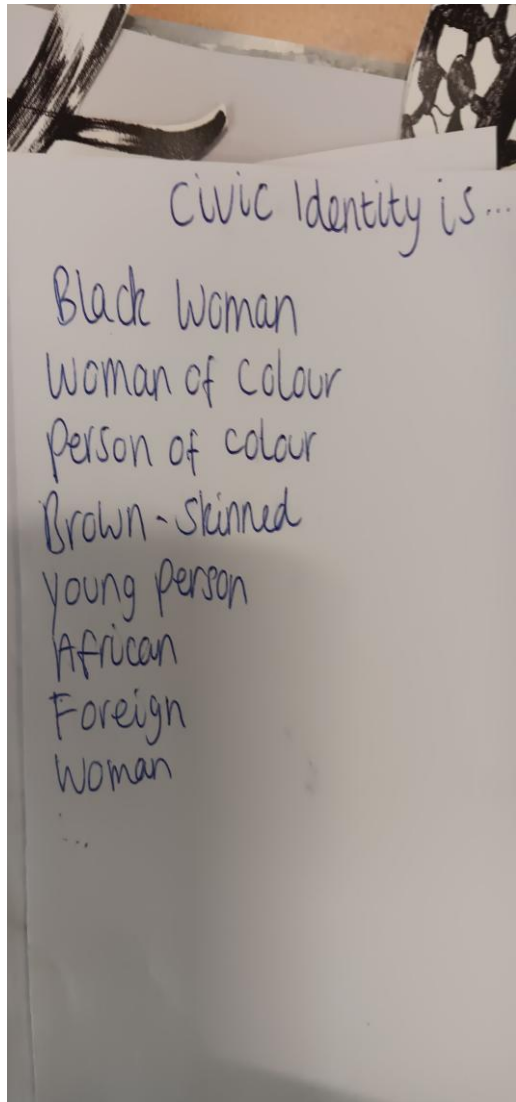 Civic Identity is...
Black Woman
Woman of Colour
Person of colour
Brown-Skinned
Young person
African
Foreign
Woman
...